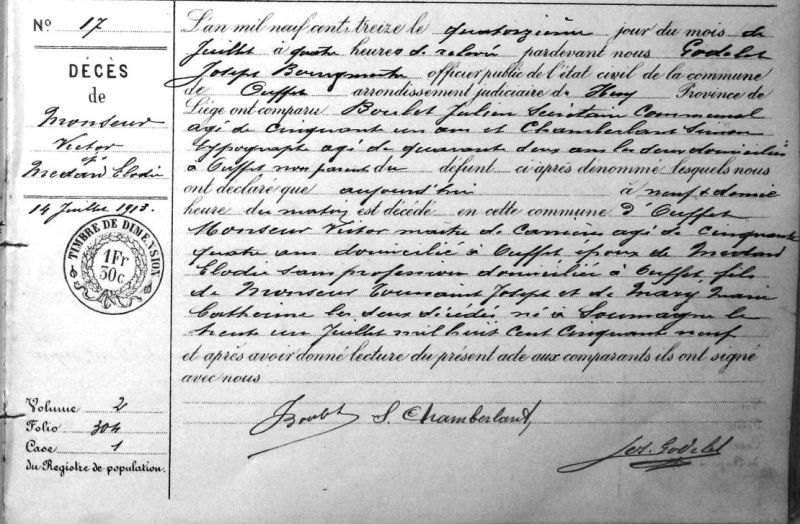 N° 17
DÉCÈS
de
Monseur
Victor
ép
Medard Elodie
14 Juillet 1913.
TIMBRE DE DIMENSION
1 Fr
30c
Volume 2
Folio 304
Case 1
du Registre de population.
L'an mil neuf cent treize le quatorzième jour du mois de
Juillet à quatre heures de relevée pardevant nous Godelet
Joseph Bourgmestre officier public de l'état civil de la commune
de Ouffet arrondissement judiciaire de Huy Province de
Liège ont comparu Boulet Julien Secrétaire Communal
agé de cinquant un ans et Chamberlant Simon
typographe agé de quarant deux ans les deux domiciliés
à Ouffet non parent du défunt ci après dénommé lesquels nous
ont déclaré que aujourd'hui à neuf & demie
heure du matin est décédé en cette commune d'Ouffet
Monseur Victor maitre de carrière agé de cinquante
quatre ans domicilié à Ouffet époux de Medard
Elodie sans profession domiciliée à Ouffet fils
de Monseur Toussaint Joseph et de Mary Marie
Catherine les deux décédés né à Soumagne le
trente un Juillet mil huit cent cinquante neuf
et après avoir donné lecture du présent acte aux comparants ils ont signé
avec nous
JBoulet S. Chamberlant
Jos. Godelet